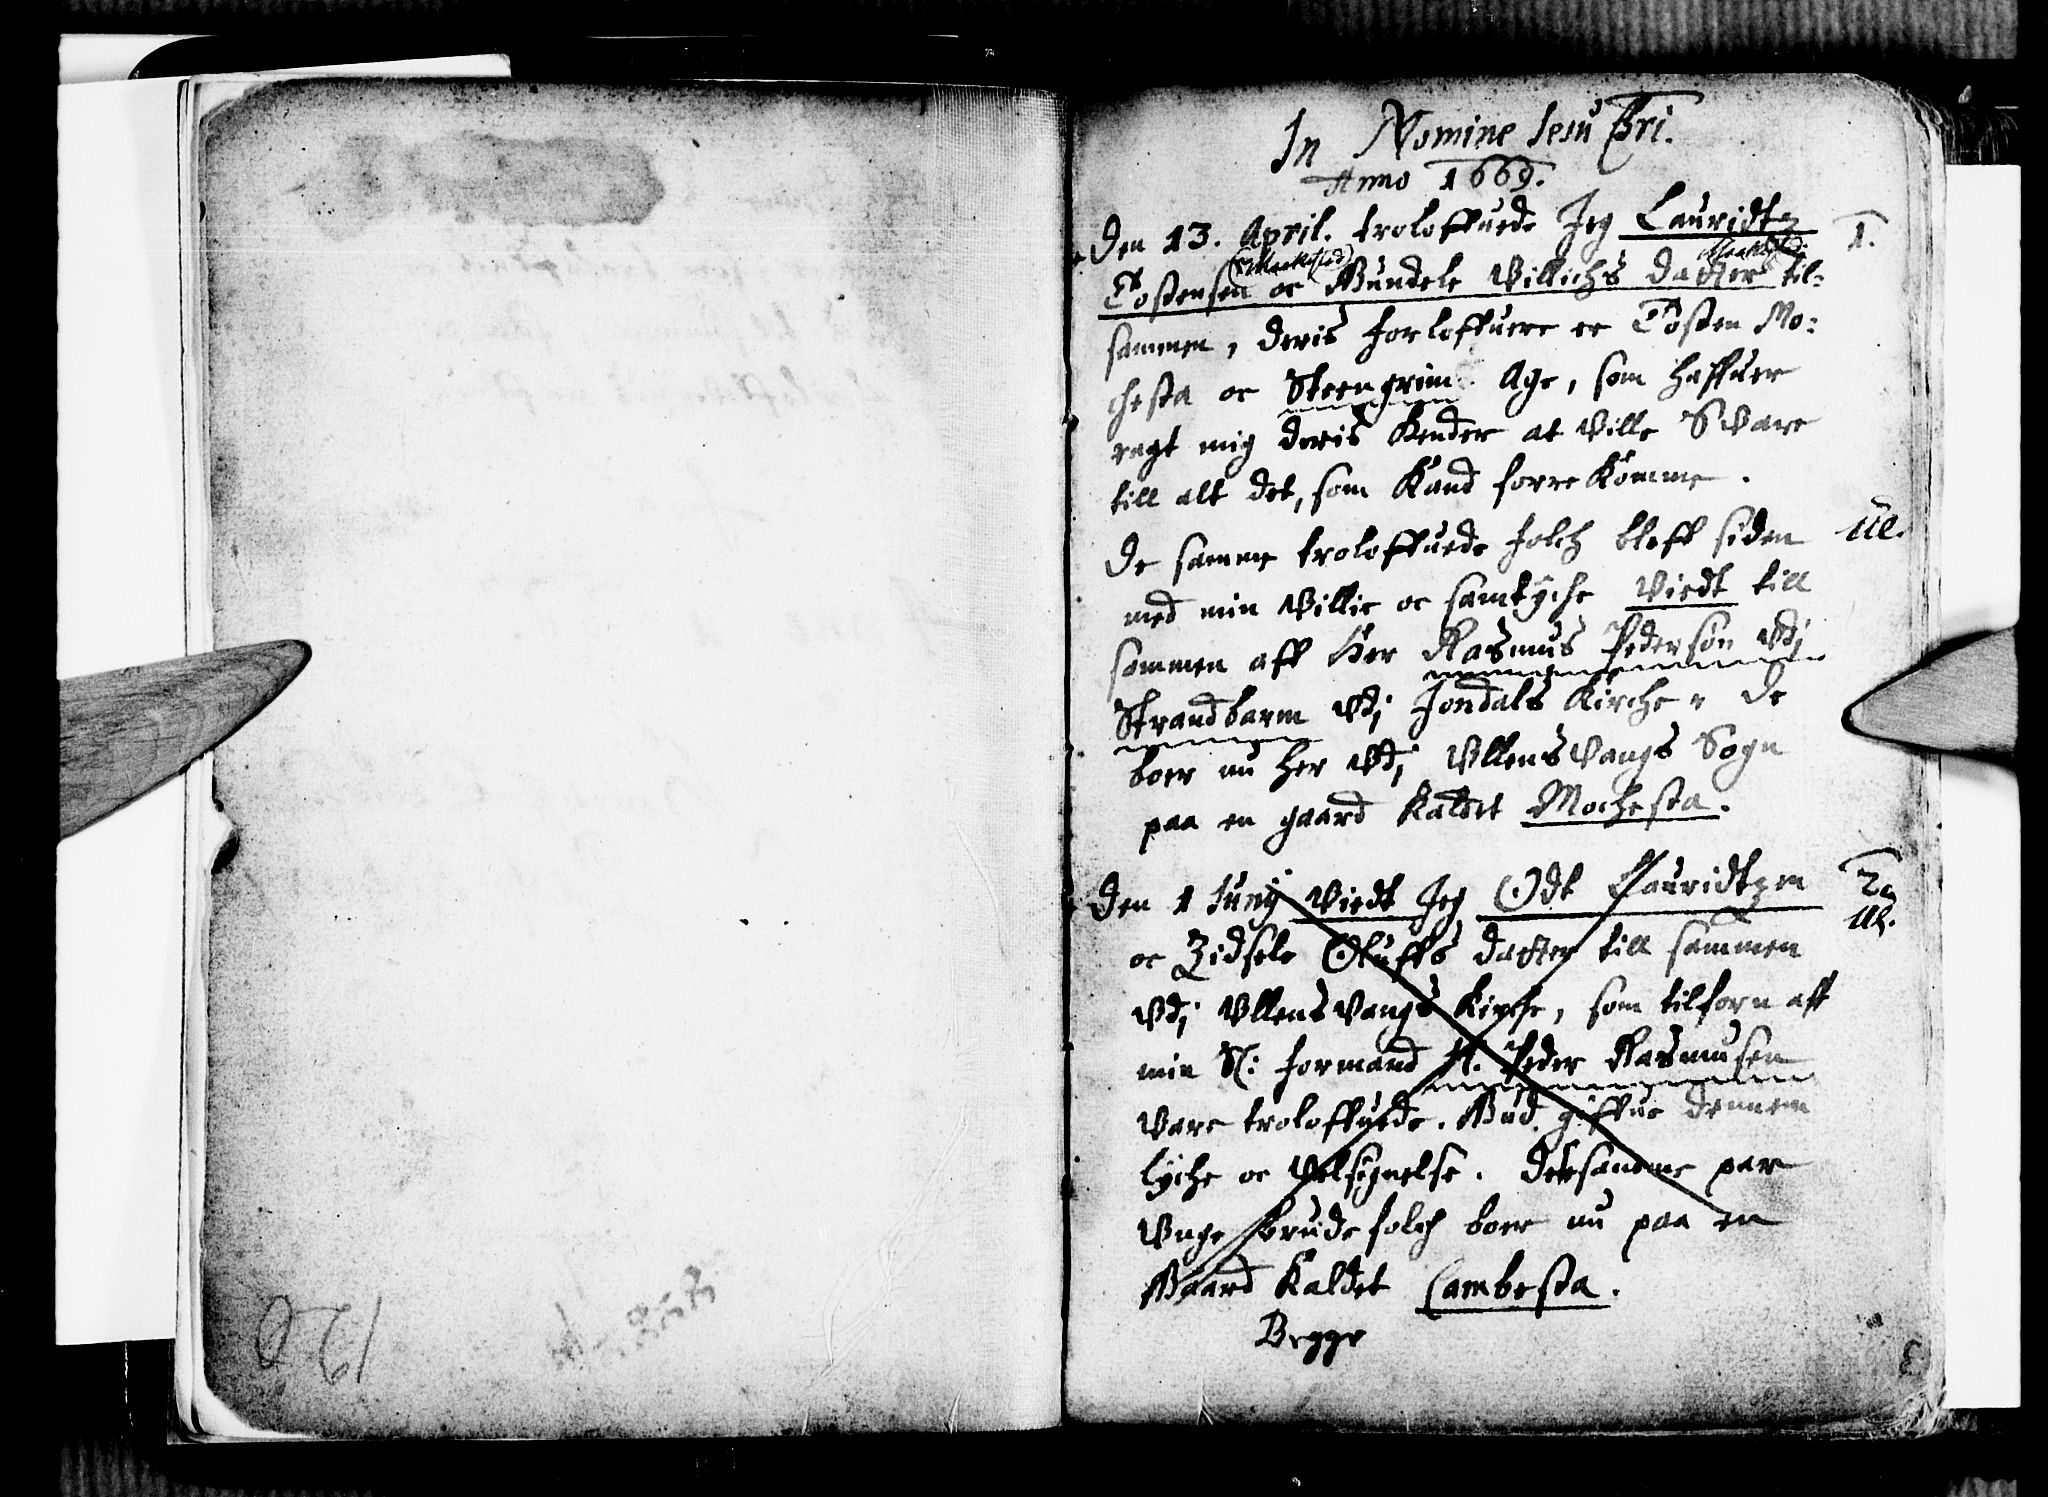 In Nomine Jesu Chri.
Anno 1669.
Den 13. April. troloffuede Jeg Lauridtz
1.
Tostensen oc Gundele Villichs daatter til-
sammen, deris forloffuere er Tosten Mo-
chesta oc Steengrim Age, som haffuer
ragt mig deris Hender at ville Svare
till alt det, som Kand forrekomme.
De samme troloffuede folch bleff siden
Ul.
med min villie oc samtyche Viedt till
sammen aff Her Rasmus Pedersøn udj
Strandbarm udj Jondals Kirche, De
boer nu her udj Ullensvangs Sogn
paa en gaard Kaldet Mochesta.
Den 1 Junij viedt Jeg Odt Lauridtzen
2.
Ul.
oc Zidsele Oluffs daatter till sammen
udj Ullensvangs Kirche, som tilforn aff
min Sl: formand H. Peder Rasmusen
vare troloffuede. Gud giffue dennem
lyche oc Velsignelse. Dessamme par
unge brudefolch boer nu paa en
Gaard Kaldet Lambesta.
Begge
3
120